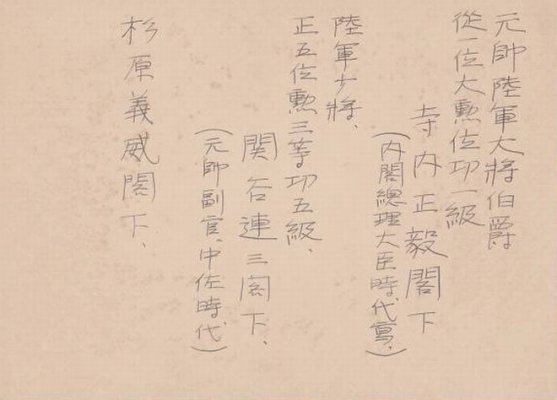 元帥陸軍大將伯爵
從一位大勲位功一級
寺内正毅閣下
(内閣總理大臣時代寫、)
陸軍少將、
正五位勲三等功五級、
関谷連三閣下、
(元帥副官、中佐時代)
杉原義威閣下、